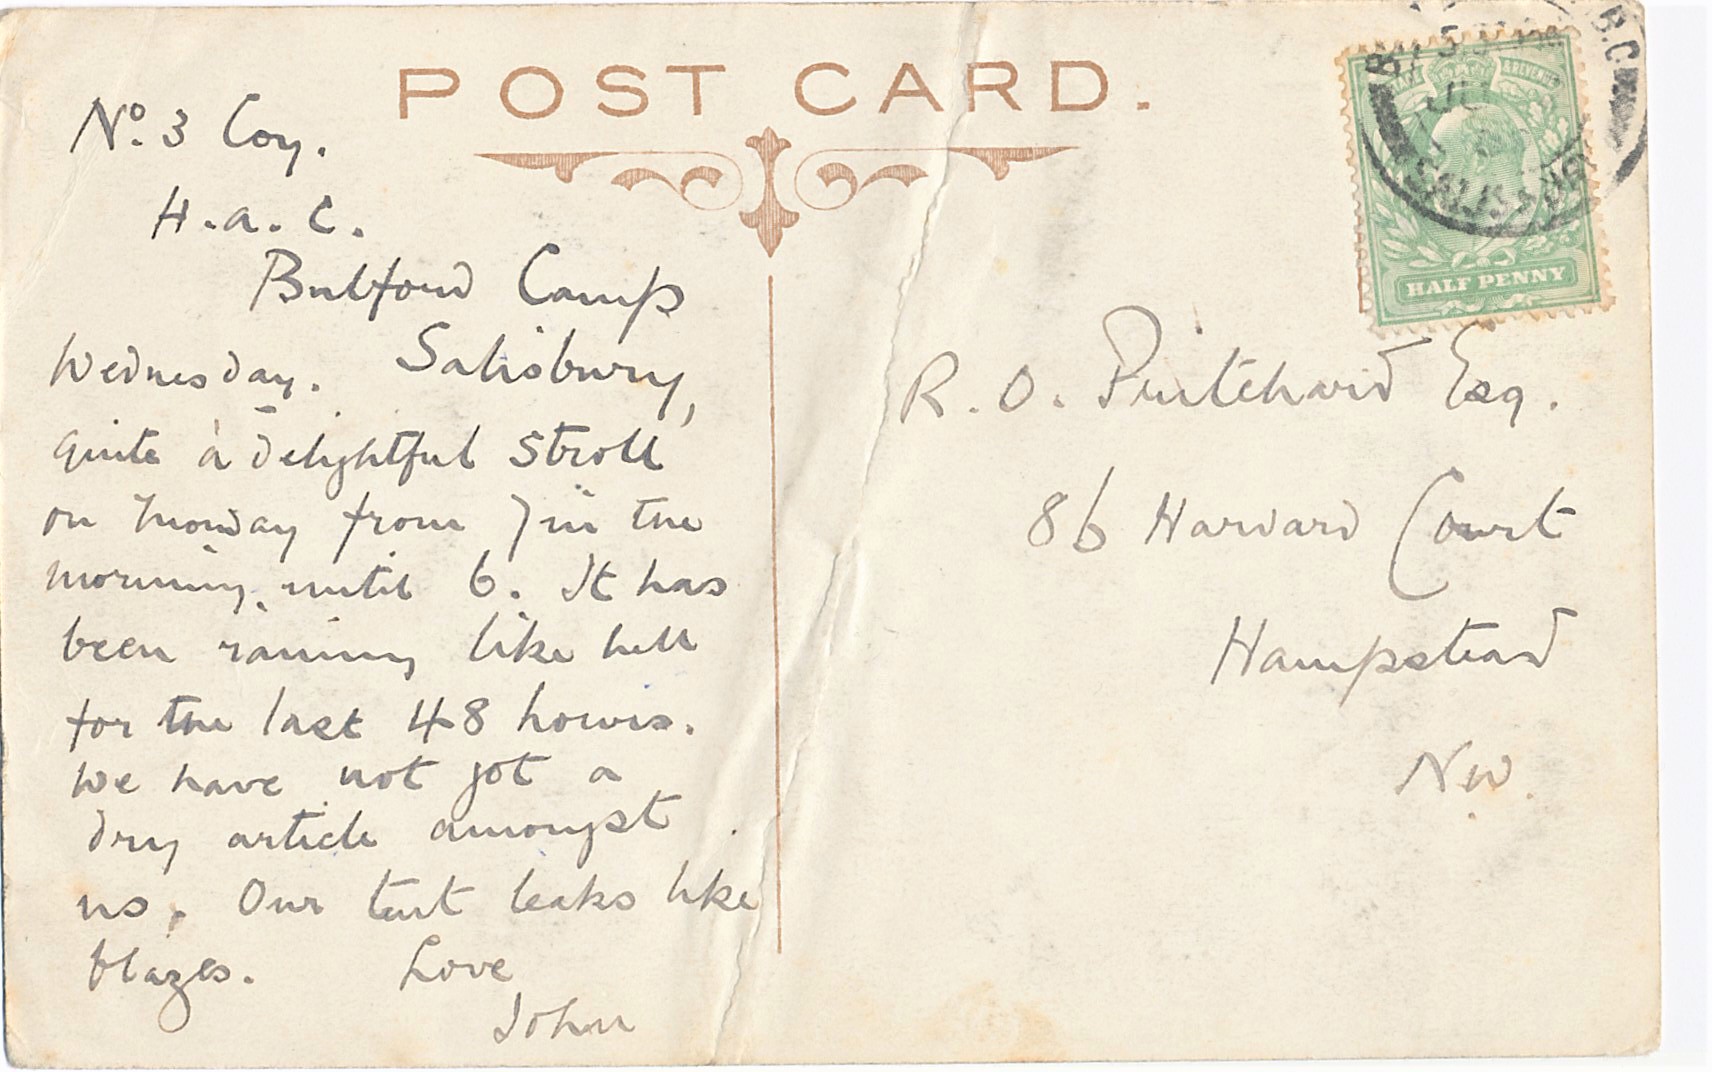 POST CARD.
No. 3 Coy.
H.A.C.
Bulford Camp
Salisbury,
Wednesday.
Quite a delightful stroll
on Monday from 7 in the
morning until 6. It has
been raining like hell
for the last 48 hours.
We have not got a
dry article amongst
us. Our tent leaks like
blazes. Love
John
R. O. Pritchard Esq.
86 Harvard Court
Hampstead
NW.
& REVENUE
HALF PENNY
B.C